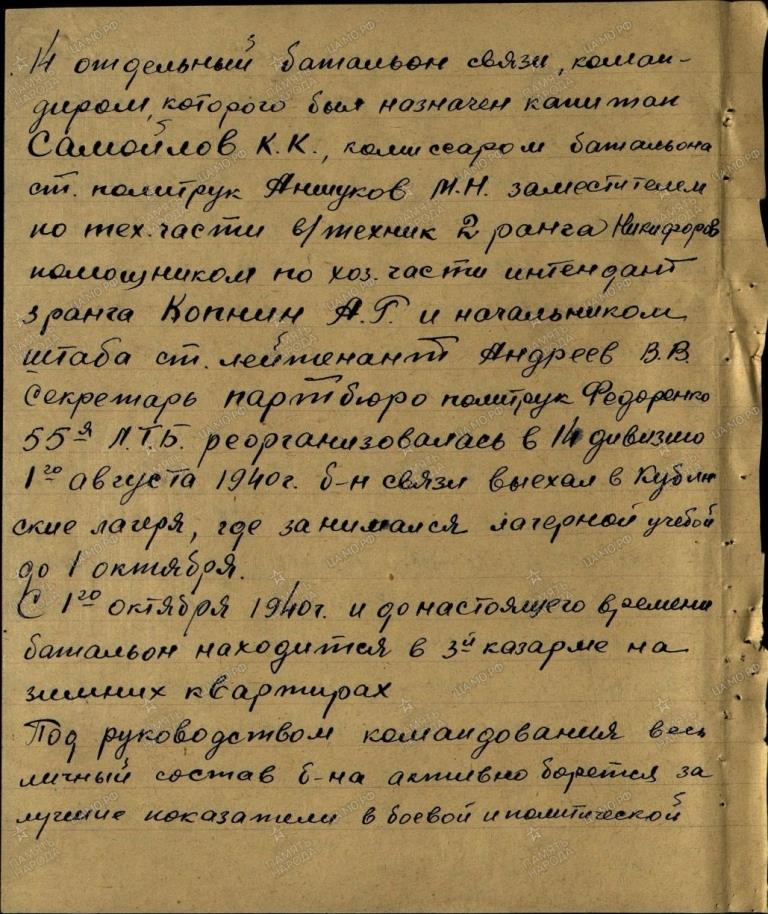 14 отдельный батальон связи, коман-
диром, которого был назначен капитан
Самойлов К.К., комиссаром батальона
ст. политрук Аншуков М.Н. заместителем
по тех. части в/техник 2 ранга Никифоров
помощником по хоз. части интендант
3 ранга Копнин А.Г. и начальником
штаба ст. лейтенант Андреев В.В.
Секретарь партбюро политрук Федоренко
55я Л.Т.Б. реорганизовалась в 14 дивизию
1го августа 1940г. б-н связи выехал в Кублин
ские лагеря, где занимался лагерной учебой
до 1 октября.
С 1го октября 1940г. и до настоящего времени
батальон находится в 3й казарме на
зимних квартирах
Под руководством командования весь
личный состав б-на активно борется за
лучшие показатели в боевой и политической